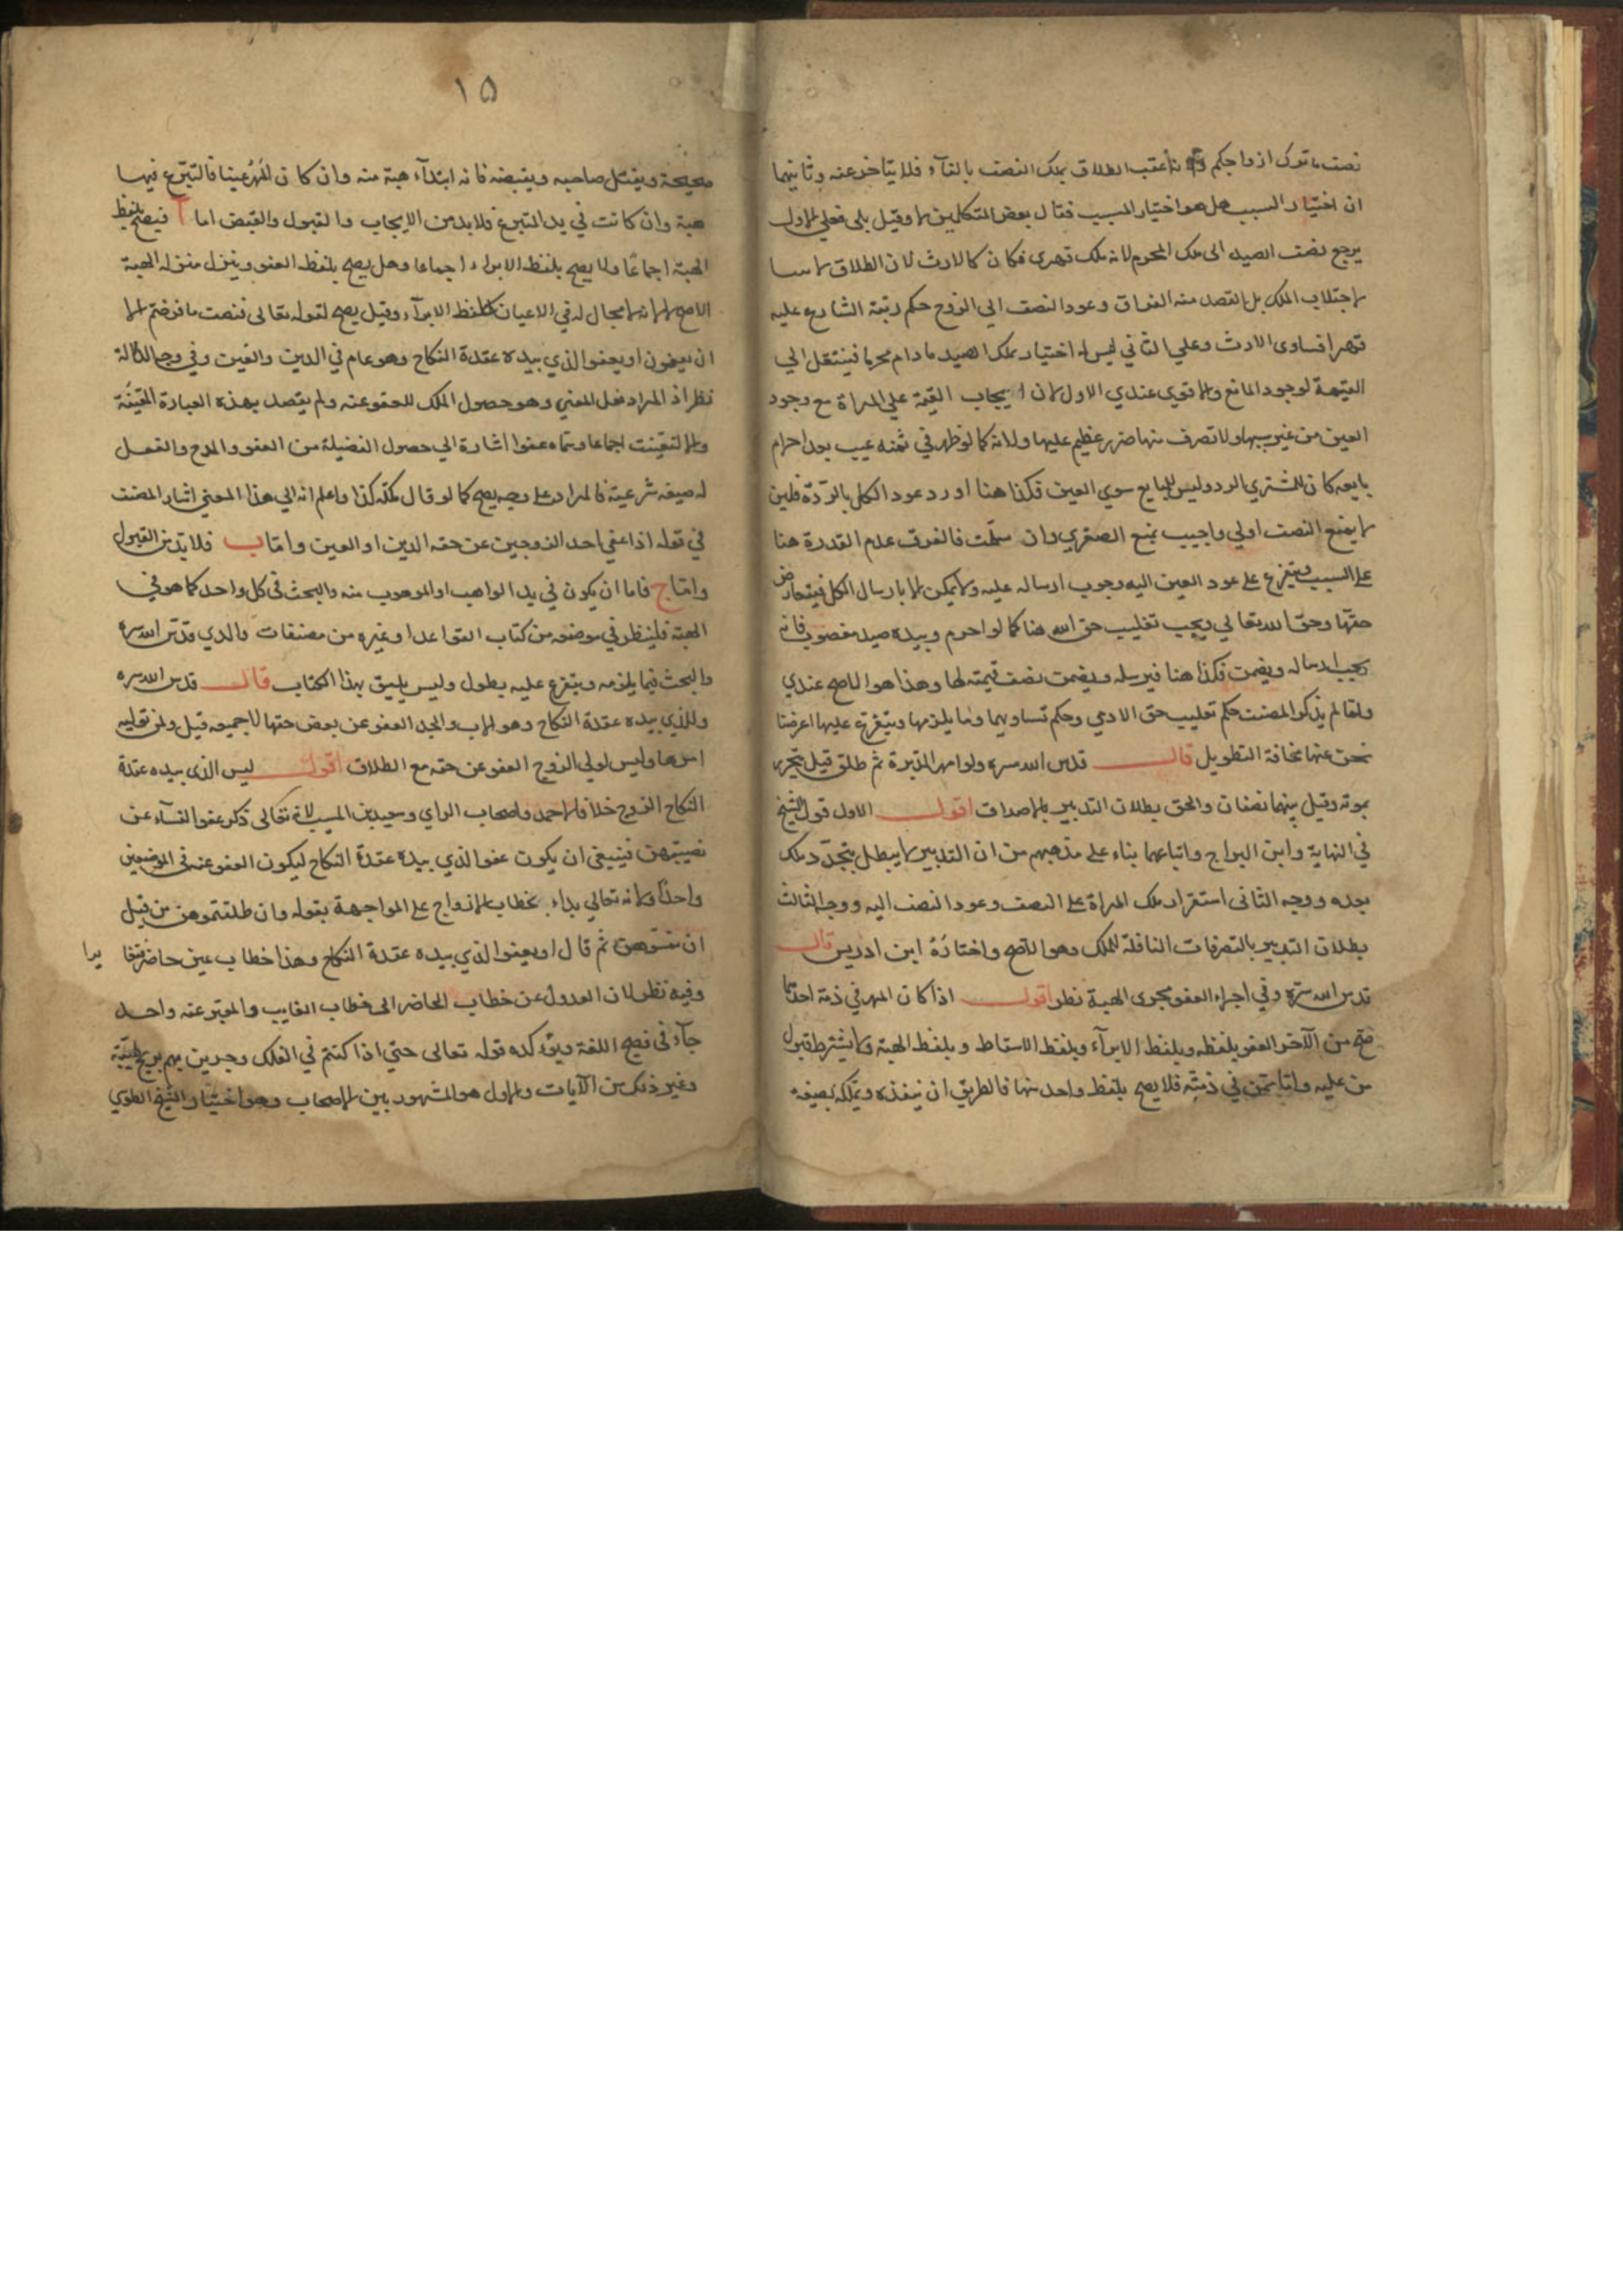 نصف ما ترك ازواجكم ثانيا عقب الطلاق يملك النصف بالفاء فلا يتاخر عنه وثانيهما
ان اختيار السبب هل هو اختيار المسبب فقال بعض المتكلمين لا وقيل بلى فعلى الاول
يرجع نصف الصيد الى ملك المحرم لانه ملك قهرى فكان كالارث لان الطلاق لا
لاجتلاب الملك بل القصد منه الفراق وعود النصف الي الزوج حكم رتبة الشارع عليه
قهرا فساوى الارث وعلي الثاني ليس له اختيار ملك الصيد ما دام محرما فينتقل الي
القيمة لوجود المانع والاقوي عندي الاول لان ايجاب القيمة علي المراة مع وجود
العين من غير سببها ولا تصرف منها ضرر عظيم عليها ولانه كما لو ظهر في ثمنه عيب بعد احرام
بايعه كان للمشتري الرد وليس للبايع سوي العين فكذا هنا اورد عود الكل بالردة فلين
لا يمنع النصف اولي واجيب بمنع الصغري وان سلمت فالفرق عدم القدرة هنا
على السبب ويتفرع على عود العين اليه وجوب ارساله عليه ولا يمكن الا بارسال الكل فيتعارض
حقها وحق الله تعالي ويجب تغليب حق الله هنا كما لو احرم وبيده صيد مغصوب فانه
يجب ارساله ويضمن فكذا هنا فيرسله ويضمن نصف قيمته لها وهذا هو الاصح عندي
ولما لم يذكر المصنف حكم تغليب حق الادمي وحكم تساويهما وما يلزمها ويتفرع عليها اعرضنا
نحن عنها مخافة التطويل قال قدس الله سره ولو امهر المدبرة ثم طلق قيل يتحرر
بموته وقيل بينهما نصفان والحق بطلان التدبير بالاصداق اقول الاول قول الشيخ
في النهاية وابن البراج واتباعهما بناء على مذهبهم من ان التدبير لا يبطل بتجدد ملك
بعده ووجه الثانى استقرار ملك المراة على النصف وعود النصف اليه ووجه الثالث
بطلان التدبير بالتصرفات الناقلة للملك وهو الاصح واختاره ابن ادريس قال
قدس الله سره وفي اجراء العفو مجرى الهبة نظر اقول اذا كان المهر في ذمة احدهما
صح من الآخر العفو بلفظه وبلفظ الابرآء وبلفظ الاسقاط وبلفظ الهبة ولا يشترط قبول
من عليه واما ممن في ذمته فلا يصح بلفظ واحد منها فالطريق ان ينقده ويملكه بصيغة
١٥
صحيحة ويقبل صاحبه ويقبضه فانه ابتدآء هبة منه وان كان المهر عينا فالتبرع فيها
هبة وان كانت في يد المتبرع فلا بد من الايجاب والقبول والقبض اما آ فيصح بلفظ
الهبة اجماعا ولا يصح بلفظ الابراء اجماعا وهل يصح بلفظ العفو وينزل منزلة الهبة
الاصح لا لانه لا مجال له في الاعيان كلفظ الابرآء وقيل يصح لقوله تعالى فنصف ما فرضتم الا
ان يعفون او يعفوا الذي بيده عقدة النكاح وهو عام في الدين والعين وفي وجه الدلالة
نظر اذ المراد فعل المعني وهو حصول الملك للعفو عنه ولم يقصد بهذه العبارة المعينة
والا لتعينت اجماعا وسماه عفوا اشارة الي حصول الفضيلة من العفو والمدح والفعل
له صيغة شرعية فالمراد على وجه يصح كما لو قال ملكه كذا واعلم انه الي هذا المعني اشار المصنف
في قوله اذا عفي احد الزوجين عن حقه الدين او العين واما ب فلا بد من القبول
واما ج فاما ان يكون في يد الواهب او الموهوب منه والبحث في كل واحد كما هو في
الهبة فلينظر في موضعه من كتاب القواعد او غيره من مصنفات والدي قدس الله سره
والبحث فيما يلزمه ويتفرع عليه يطول وليس يليق بهذا الكتاب قال قدس الله سره
وللذي بيده عقدة النكاح وهو الاب والجد العفو عن بعض حقها لا جميعه قيل ولمن توليه
امرها وليس لولي الزوج العفو عن حقه مع الطلاق اقول ليس الذي بيده عقدة
النكاح الزوج خلافا لاحمد واصحاب الراي وسعيد بن المسيب لانه تعالى ذكر عفو النسآء عن
نصيبهن فينبغى ان يكون عفو الذي بيده عقدة النكاح ليكون العفو عنه فى الموضعين
واحدا ولانه تعالي بداء بخطاب الازواج على المواجهة بقوله وان طلقتموهن من قبل
ان تمسوهن ثم قال او يعفوا الذي بيده عقدة النكاح وهذا خطاب غير حاضر
وفيه نظر لان العدول عن خطاب الحاضر الى خطاب الغايب والمعبر عنه واحد
جآء فى فصيح اللغة ويؤكده قوله تعالى حتى اذا كنتم في الفلك وجرين بهم بريح طيبة
وغير ذلك من الآيات والاول هو المشهور بين الاصحاب وهو اختيار الشيخ الطوسي